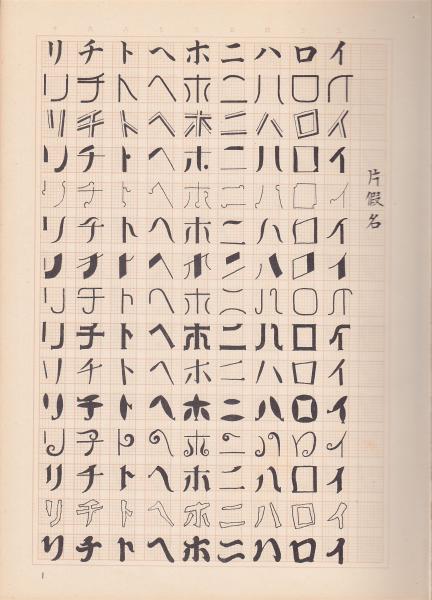 片假名
イイイイイイイイイイイイイイイ
ロロロロロロロロロロロロロロロ
ハハハハハハハハハハハハハハハ
ニニニニニニニニニニニニニニニ
ホホホホホホホホホホホホホホホ
ヘヘヘヘヘヘヘヘヘヘヘヘヘヘヘ
トトトトトトトトトトトトトトト
チチチチチチチチチチチチチチチ
リリリリリリリリリリリリリリリ
1